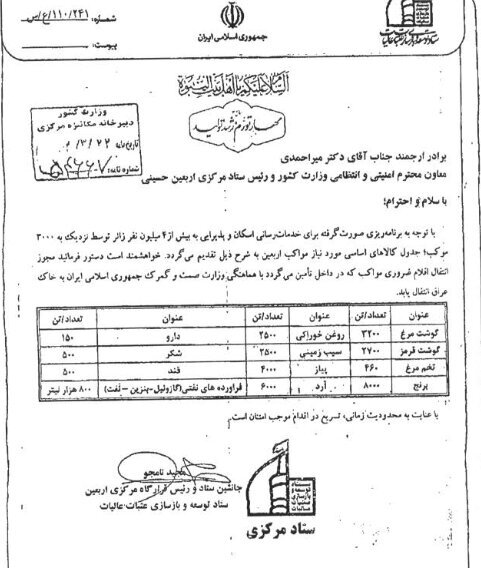 شماره: ۱۱۰/۲۴۱/ع/ص
پیوست:
جمهوری اسلامی ایران
السلام علیکم یا اهل بیت النبوة
مهار تورم، رشد تولید
وزارت کشور
دبیرخانه مکانیزه مرکزی
تاریخ نامه:
شماره نامه:
برادر ارجمند جناب آقای دکتر میراحمدی
معاون محترم امنیتی و انتظامی وزارت کشور و رئیس ستاد مرکزی اربعین حسینی
با سلام و احترام؛
با توجه به برنامه‌ریزی صورت‌گرفته برای خدمات‌رسانی اسکان و پذیرایی به بیش از ۴ میلیون نفر زائر توسط نزدیک به ۳۰۰۰
موکب؛ جدول کالاهای اساسی مورد نیاز مواکب اربعین به شرح ذیل تقدیم می‌گردد. خواهشمند است دستور فرمائید مجوز
انتقال اقلام ضروری مواکب که در داخل تأمین می‌گردد با هماهنگی وزارت صمت و گمرک جمهوری اسلامی ایران به خاک
عراق انتقال یابد.
عنوان تعداد/تن عنوان تعداد/تن عنوان تعداد/تن
گوشت مرغ ۳۲۰۰ روغن خوراکی ۲۵۰۰ دارو ۱۵۰
گوشت قرمز ۲۷۰۰ سیب زمینی ۲۵۰۰ شکر ۵۰۰
تخم مرغ ۴۶۰ پیاز ۴۰۰۰ قند ۵۰۰
برنج ۸۰۰۰ آرد ۶۰۰۰ فراورده های نفتی(گازوئیل-بنزین-نفت) ۸۰۰ هزار لیتر
با عنایت به محدودیت زمانی، تسریع در اقدام موجب امتنان است.
مجید نامجو
جانشین ستاد و رئیس قرارگاه مرکزی اربعین
ستاد توسعه و بازسازی عتبات عالیات
ستاد
توسعه و
بازسازی
عتبات
عالیات
ستاد مرکزی